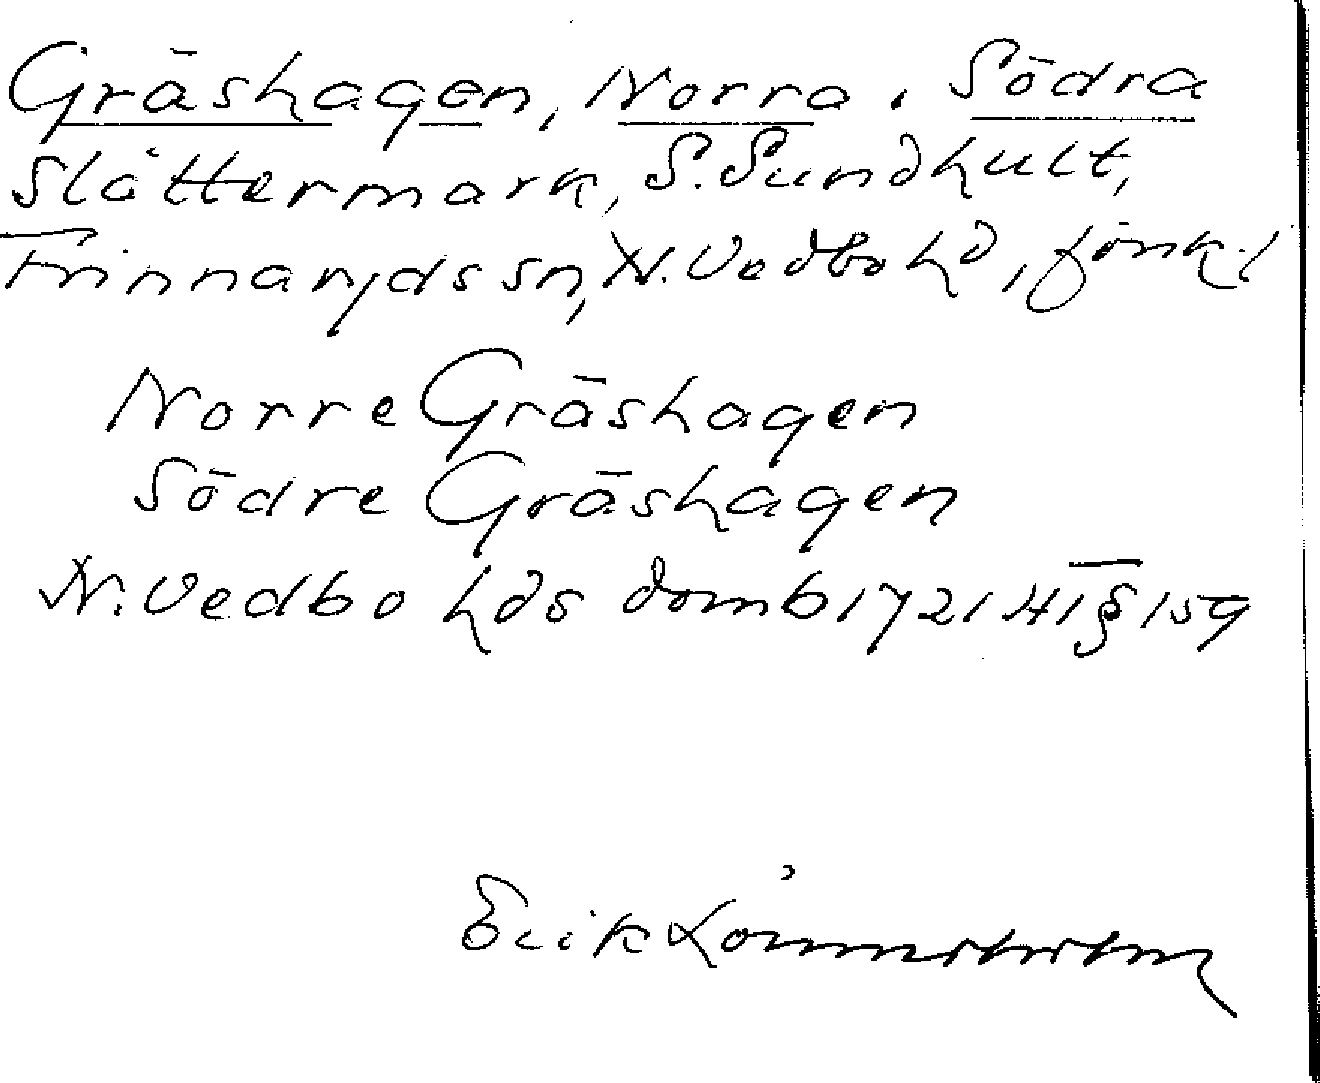 Gräshagen, Norra, Södra
Slåttermark, S. Sundhult,
Frinnaryds sn, N. Vedbo hd, Jönk. l
Norre Gräshagen
Södre Gräshagen
N. Vedbo hds domb 1721 HT § 159
Erik Lönnerholm